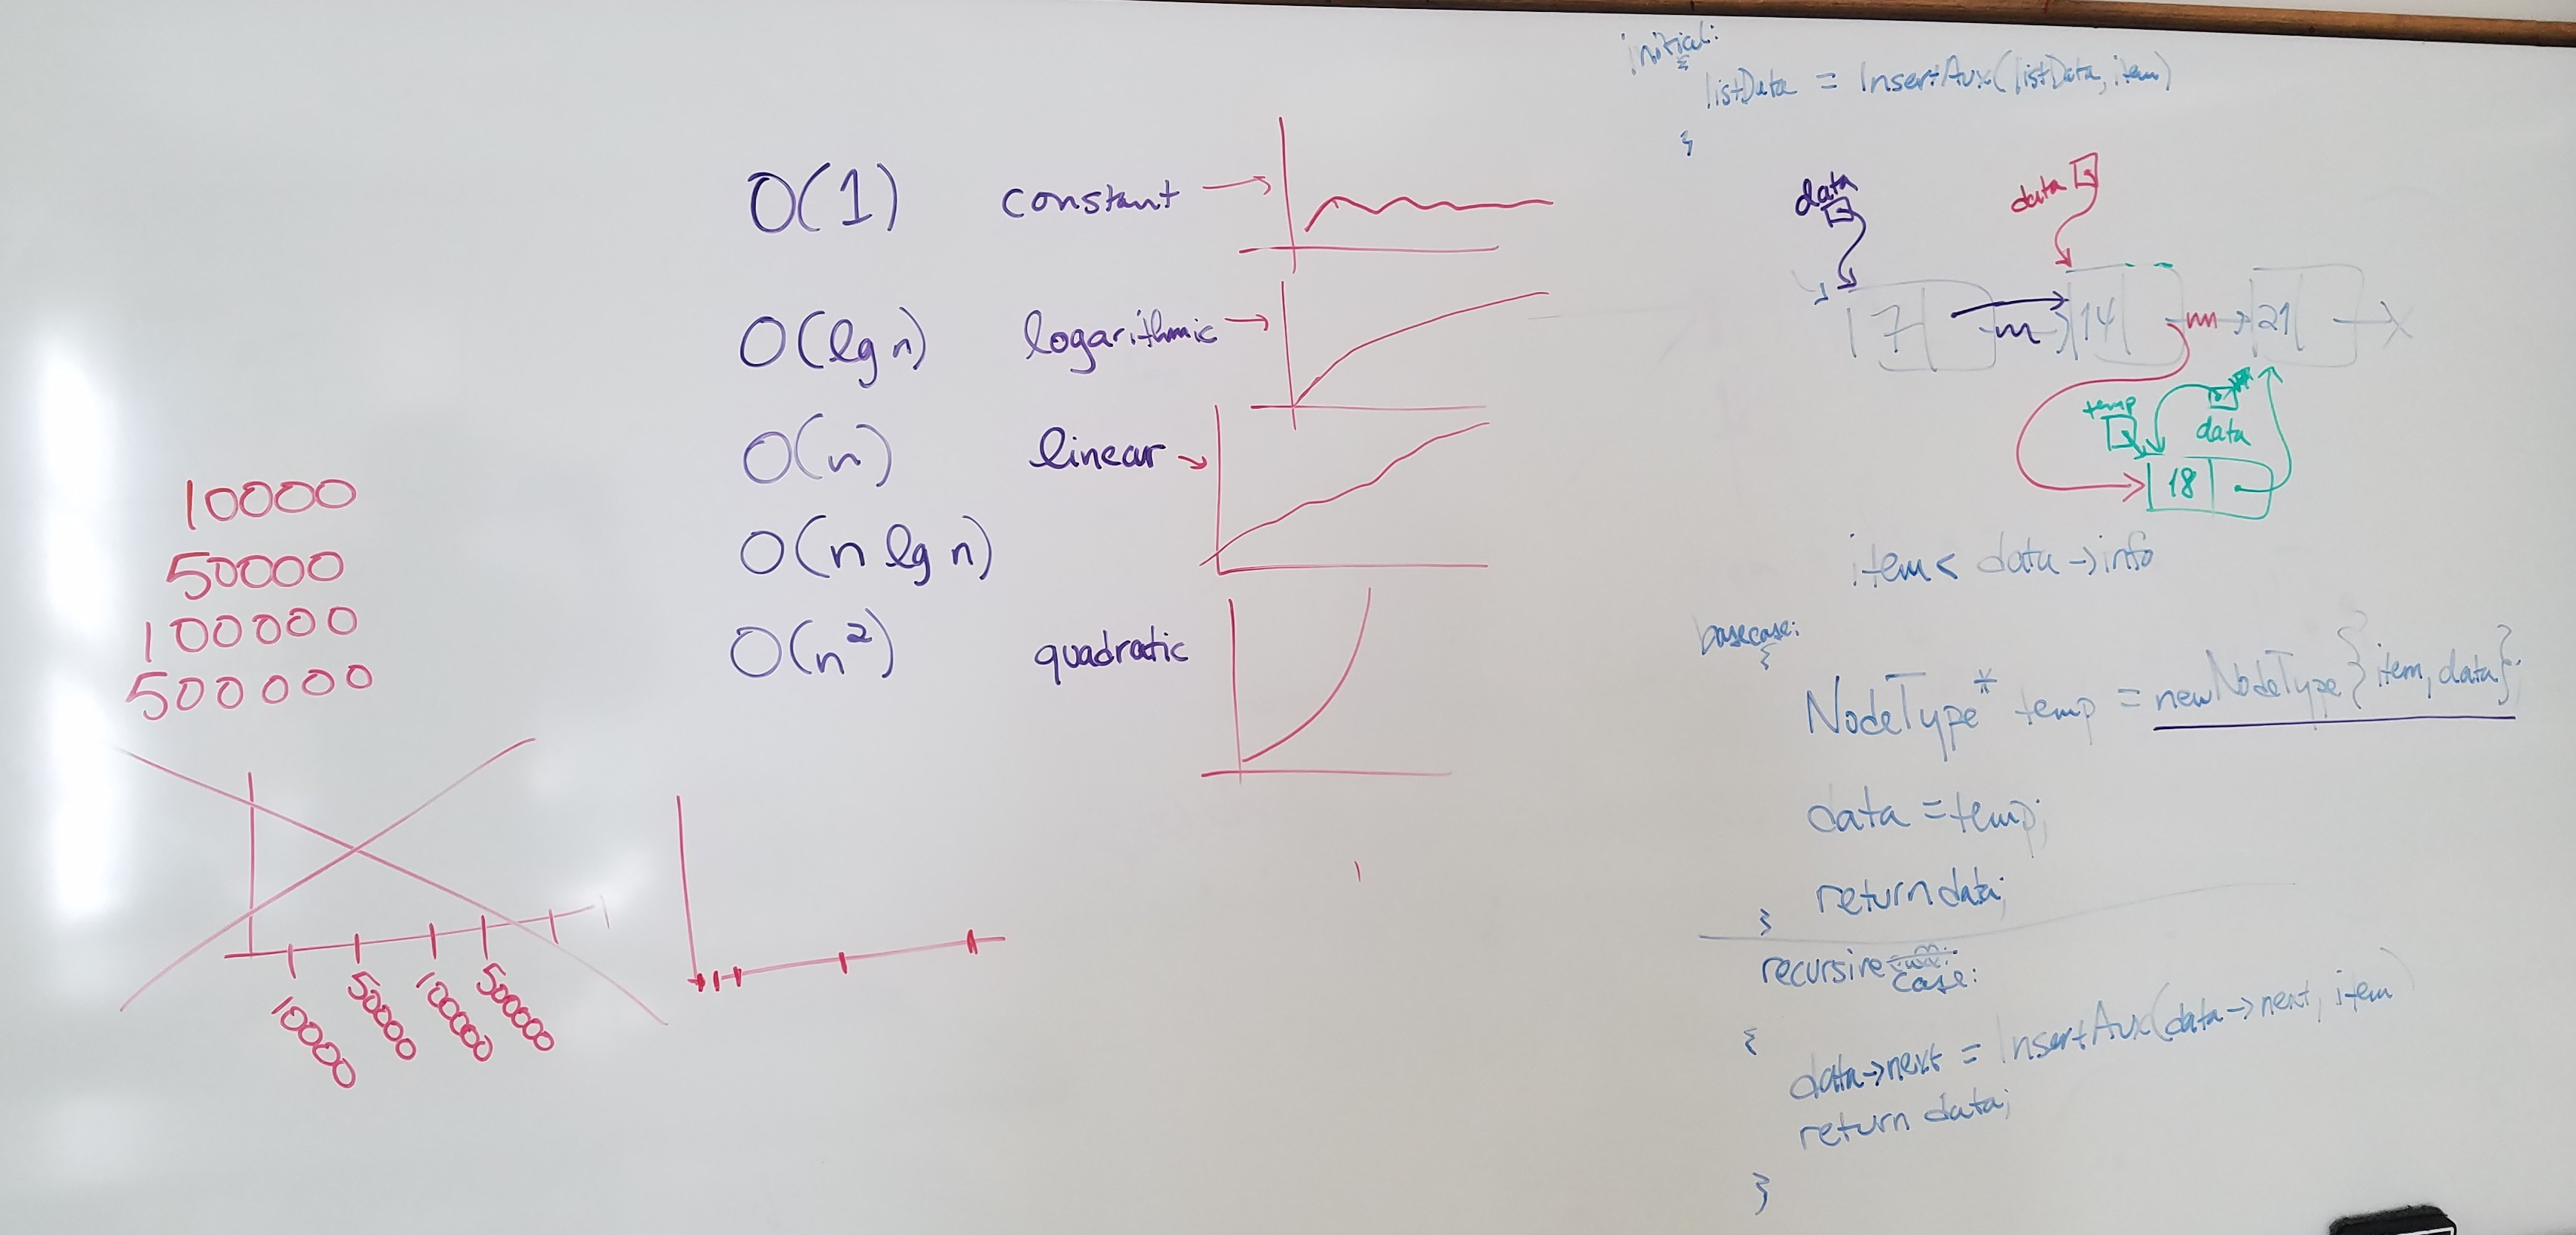 10000
50000
100000
500000
10000
50000
100000
500000
O(1) constant
O(lg n) logarithmic
O(n) linear
O(n lg n)
O(n²) quadratic
initial:
{
listData = InsertAux(listData, item)
}
data
data
7 14 21
temp
data
18
item < data->info
basecase:
{
NodeType* temp = new NodeType{item, data};
data = temp;
return data;
}
recursive
case:
{
data->next = InsertAux(data->next, item)
return data;
}